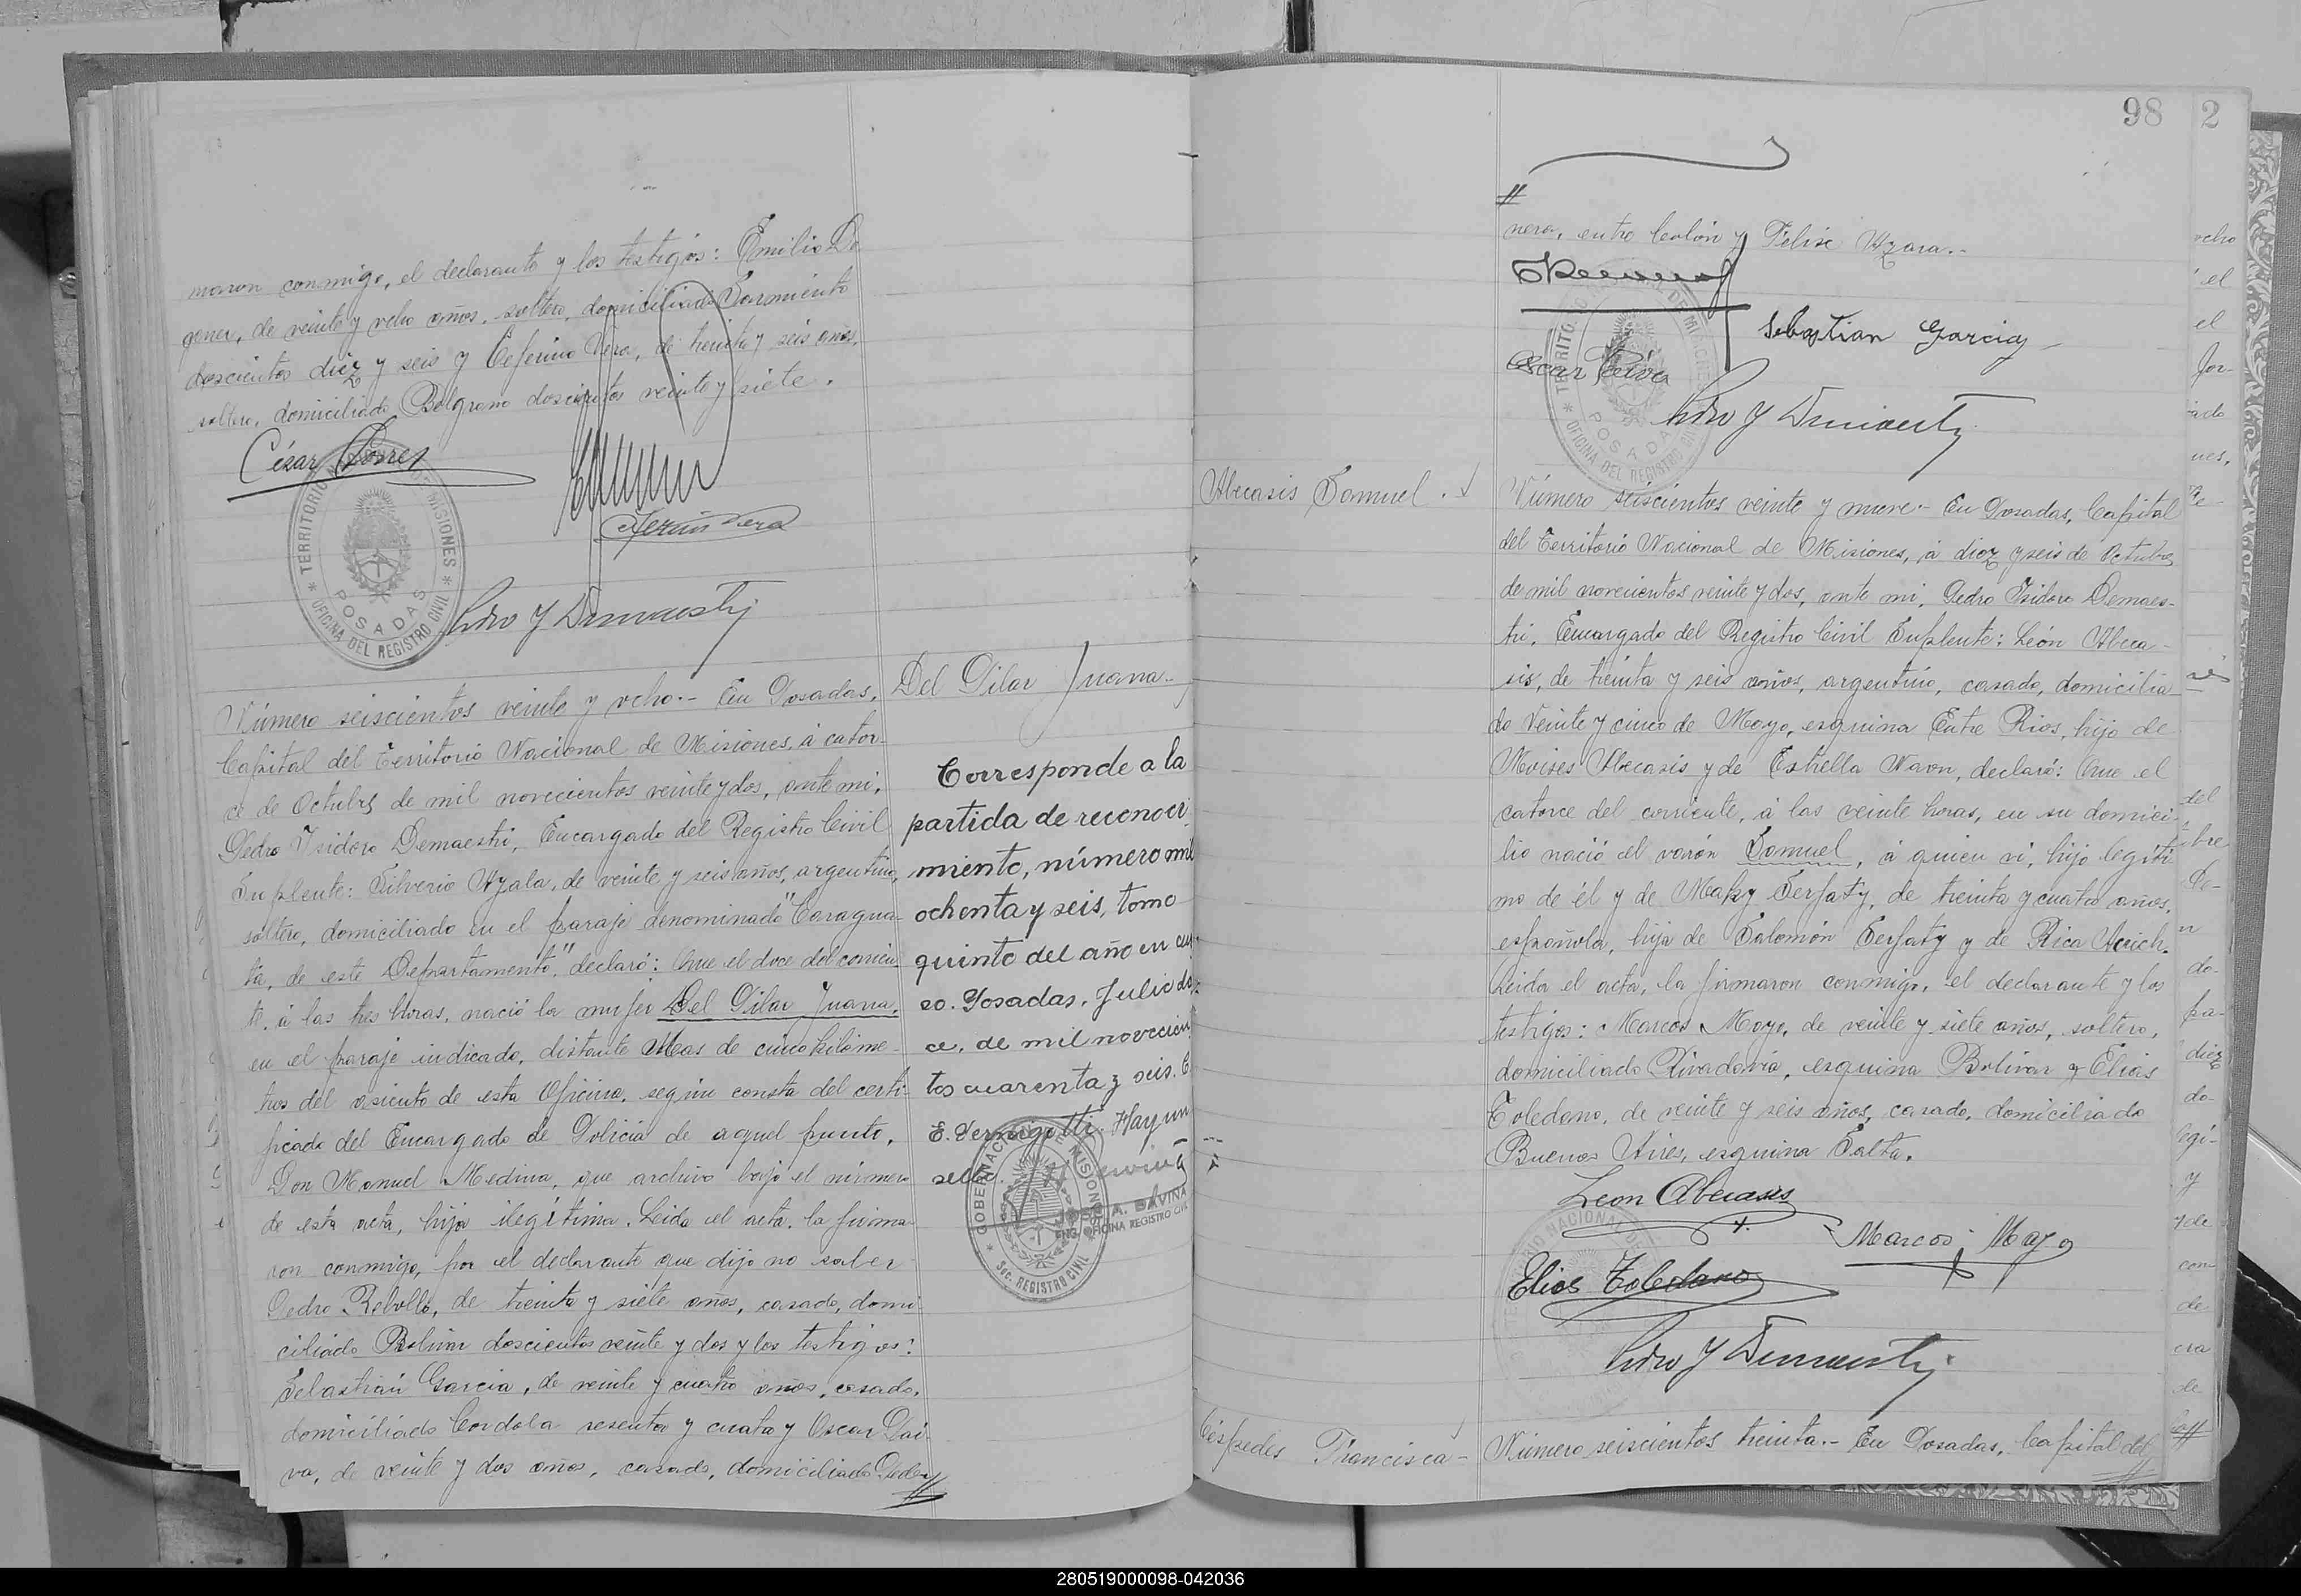 maron conmigo, el declarante y los testigos: Emilio De
gener, de veinte y ocho años, soltero, domiciliado Sarmiento
doscientos diez y seis y Ceferino Vera, de treinta y seis años,
soltero, domiciliado Belgrano doscientos veinte y siete.
César Torres
TERRITORIO DE MISIONES
POSADAS
* OFICINA DEL REGISTRO CIVIL *
Número seiscientos veinte y ocho.- En Posadas,
Capital del Territorio Nacional de Misiones, á cator-
ce de Octubre de mil novecientos veinte y dos, ante mi,
Pedro Isidoro Demaestri, Encargado del Registro Civil
Suplente: Silverio Ayala, de veinte y seis años, argentino,
soltero, domiciliado en el paraje denominado "Caragua-
tá, de este Departamento", declaró: Que el doce del corrien
te, á las tres horas, nació la mujer Del Pilar Juana,
en el paraje indicado, distante Mas de cinco kilóme-
tros del asiento de esta Oficina, según consta del certi-
ficado del Encargado de Policía de aquel punto,
Don Manuel Medina, que archivo bajo el número
de esta acta, hija ilegítima. Leida el acta, la firma-
ron conmigo, por el declarante que dijo no saber
Pedro Rebollo, de treinta y siete años, casado, domi-
ciliado Bolívar doscientos veinte y dos y los testigos:
Sebastián García, de veinte y cuatro años, casado,
domiciliado Córdoba sesenta y cuatro y Oscar Pai-
va, de veinte y dos años, casado, domiciliado
Del Pilar Juana.-
Corresponde a la
partida de reconoci
miento, número mil
ochenta y seis, tomo
quinto del año en cur
so. Posadas, Julio do
ce, de mil novecien
tos cuarenta y seis.
E. Vernigotti. Hay un
sello.
GOBERNACION MISIONES
JOSE A. DAVIÑA
ENC. OFICINA REGISTRO CIVIL
Sec. REGISTRO CIVIL
98
2
nera, entre Colón y Félix Azara.-
Sebastian Garcia
Oscar Paiva
Pedro Y Demaestri
TERRITORIO DE MISIONES
POSADAS
* OFICINA DEL REGISTRO CIVIL
Abecasis Samuel.
Número seiscientos veinte y nueve.- En Posadas, Capital
del Territorio Nacional de Misiones, á diez y seis de Octubre
de mil novecientos veinte y dos, ante mi, Pedro Isidoro Demaes-
tri, Encargado del Registro Civil Suplente: León Abeca-
sis, de treinta y seis años, argentino, casado, domicilia
do Veinte y cinco de Mayo, esquina Entre Rios, hijo de
Moises Abecasis y de Estrella Naon, declaró: Que el
catorce del corriente, á las veinte horas, en su domici-
lio nació el varón Samuel, á quien vi, hijo legíti
mo de él y de Serfaty, de treinta y cuatro años,
española, hija de Salomón Serfaty y de Rica
Leida el acta, la firmaron conmigo, el declarante y los
testigos: Marcos Moyo, de veinte y siete años, soltero,
domiciliado Rivadavia, esquina Bolívar y Elías
Toledano, de veinte y seis años, casado, domiciliado
Buenos Aires, esquina Salta.
Leon Abecasis
Marcos Mayo
Elias Toledano
Pedro Y Demaestri
Céspedes Francisca-
Número seiscientos treinta.- En Posadas, Capital del
280519000098-042036